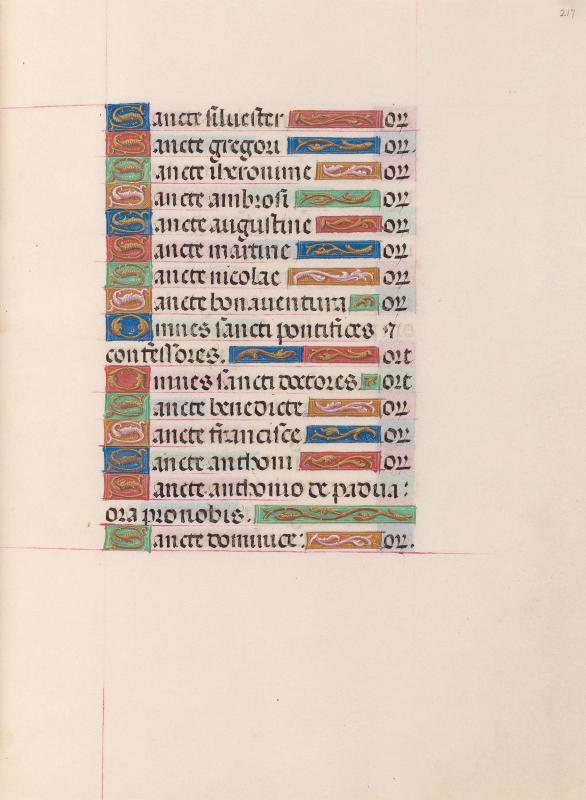 217
Sancte silvester or
Sancte gregori or
Sancte iheronime or
Sancte ambrosi or
Sancte augustine or
Sancte martine or
Sancte nicolae or
Sancte bonaventura or
Omnes sancti pontifices ⁊
confessores. ort
Omnes sancti doctores ort
Sancte benedicte or
Sancte francisce or
Sancte anthoni or
Sancte anthonio de padua:
ora pro nobis.
Sancte dominice: or.